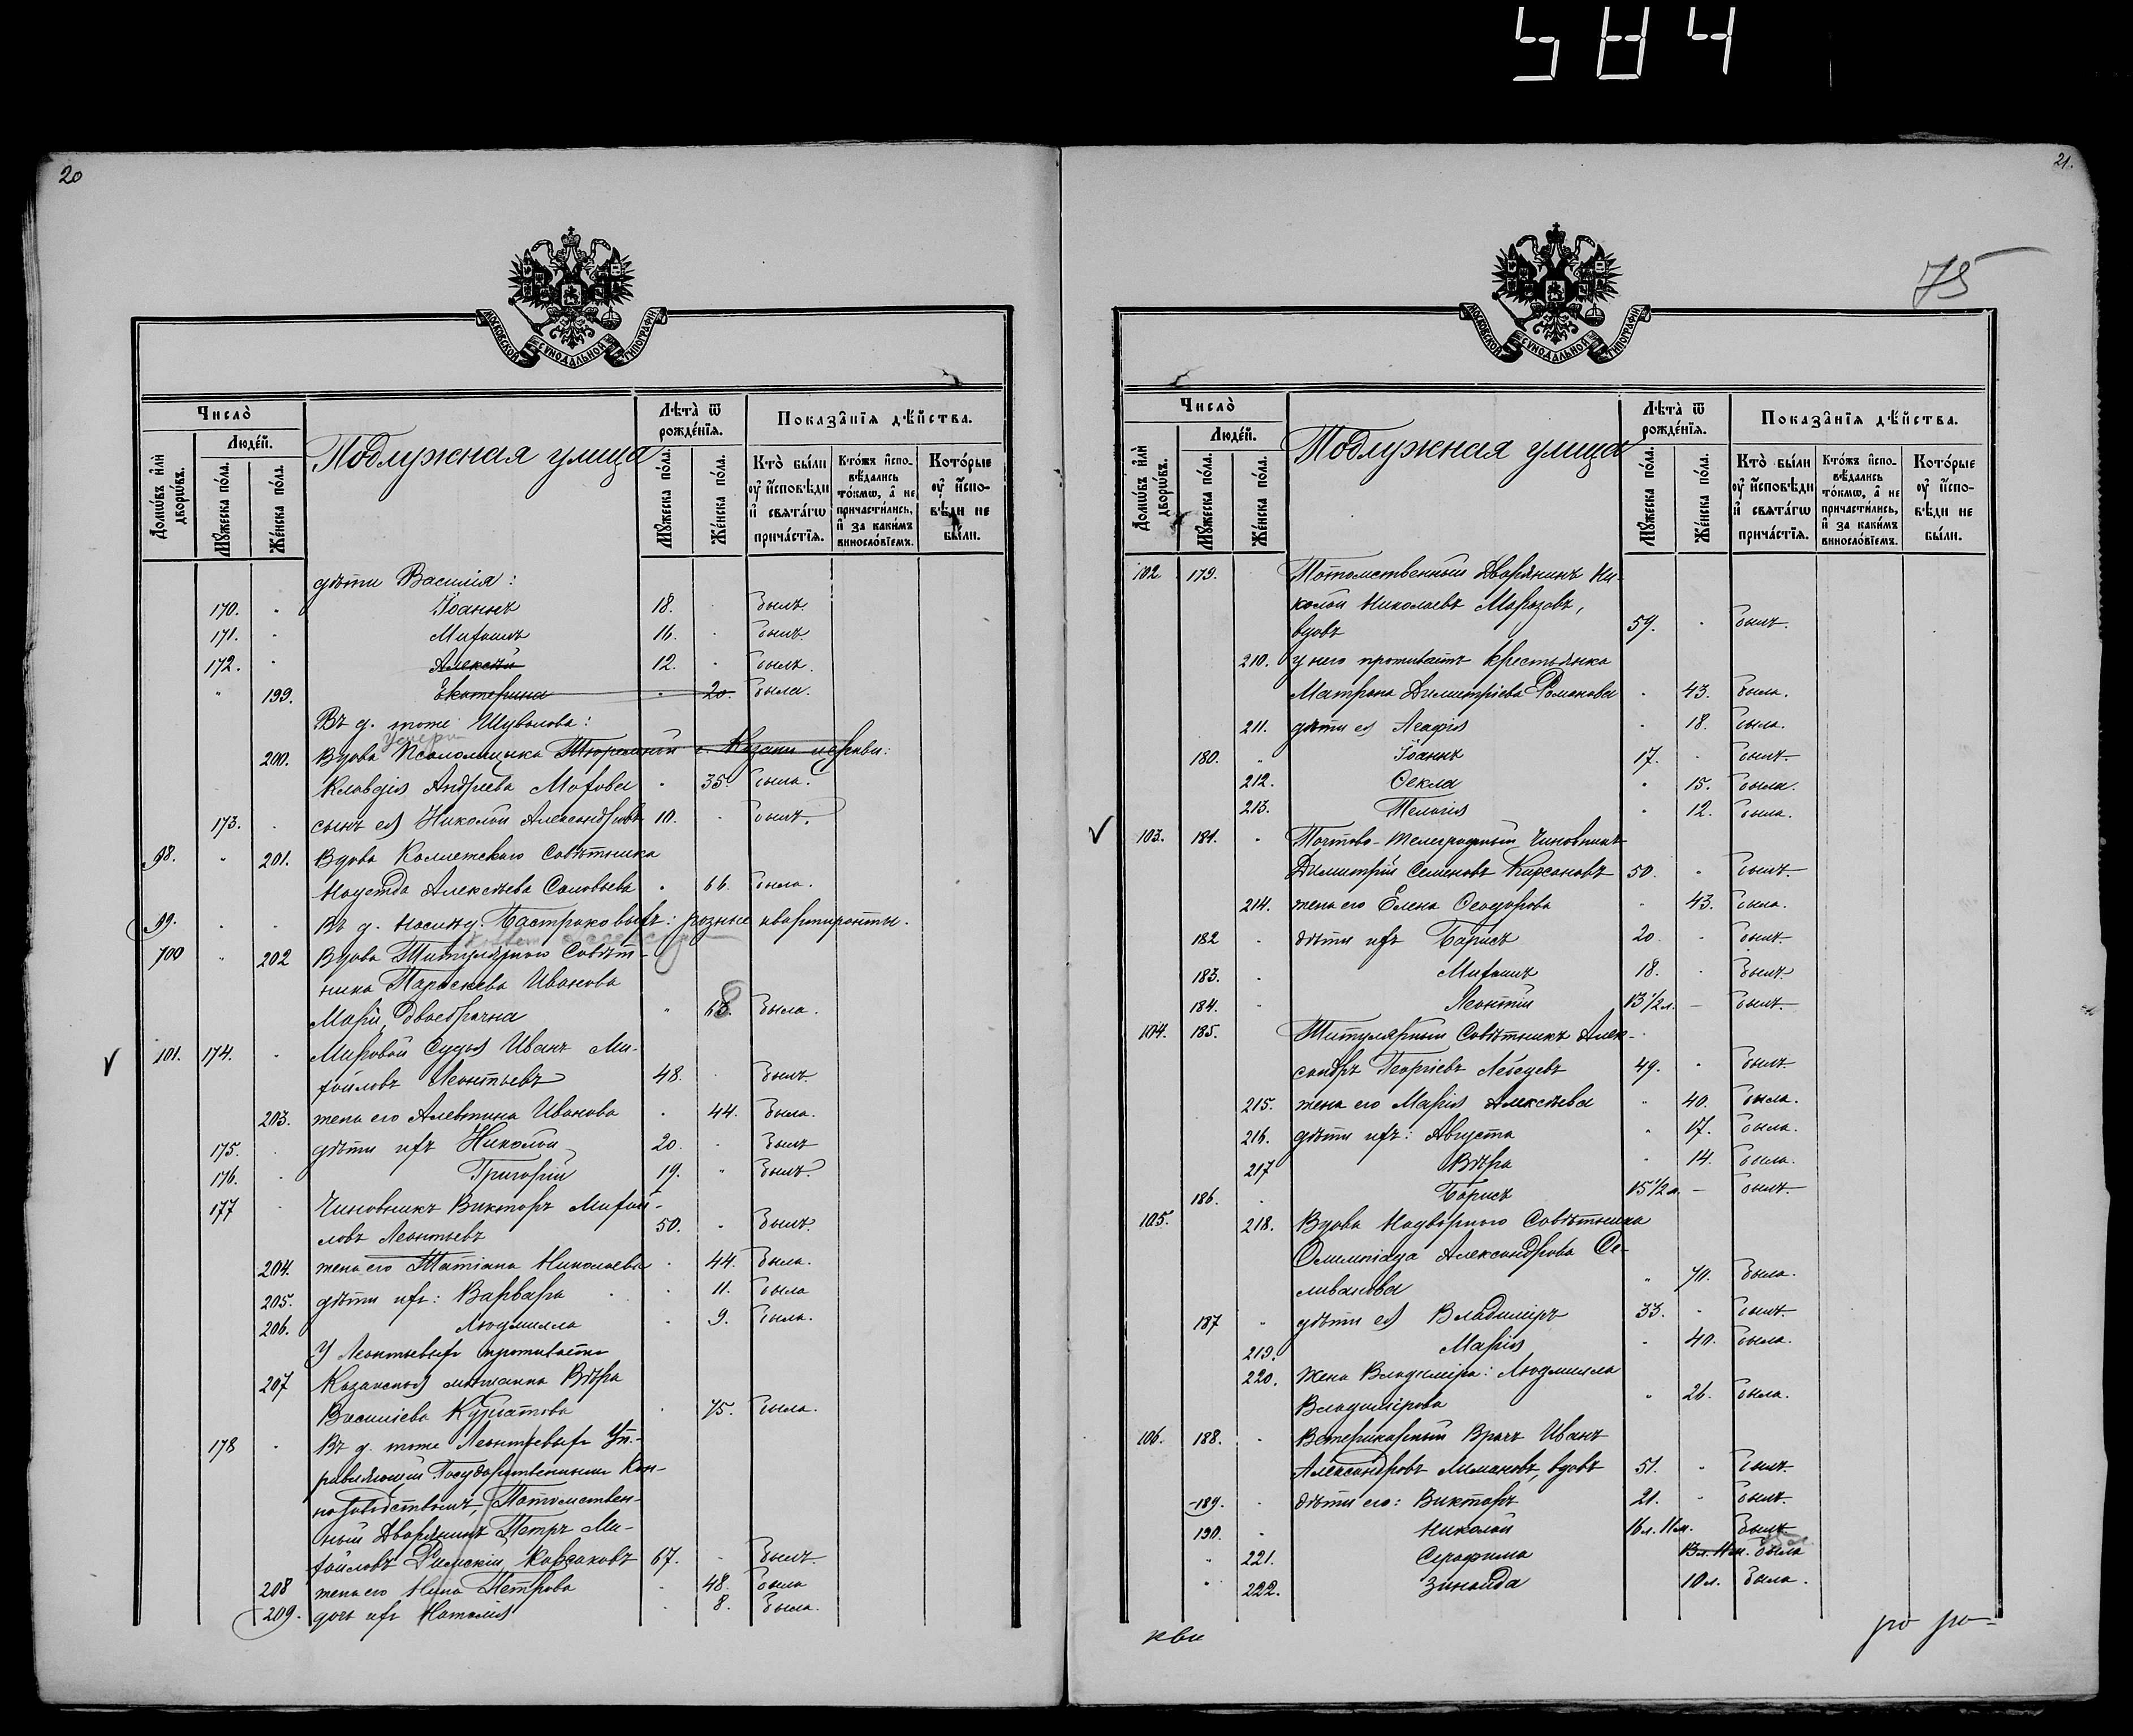 584
20
МОСКОВСКОЙ СУНОДАЛЬНОЙ ТИПОГРАФІИ
Число̀
Людéй.
Домѡ́въ и҆лѝ дворѡ́въ.
Мꙋ́жеска по́ла.
Же́нска по́ла.
Подлужная улица
Лѣта̀ ѿ рожде́нїѧ.
Мꙋ́жеска по́ла.
Же́нска по́ла.
Показа̑нїѧ дѣ́йства.
Кто̀ бы́ли оу҆ и҆сповѣди и҆ свѧта́гѡ прича́стїѧ.
Кто́жъ и҆спо-вѣдались то́кмѡ, а҆ не причасти́лись, и҆ за каки́мъ винослѡ́вїемъ.
Кото́рые оу҆ и҆спо-вѣди не бы́ли.
дѣти Василія:
170. " Іоаннъ 18. былъ.
171. " Михаилъ 16. былъ.
172. " Алексѣй 12. былъ.
" 199. Екатерина " 20. была.
Въ д. тоже Шувалова:
200. Вдова Псаломщика г. Казани церкви:
Клавдія Андреева Мохова " 35. была.
173. сынъ ея Николай Александровъ 10. былъ.
98. " 201. Вдова Коллежскаго Совѣтника
Надежда Алексѣева Соловьева " 66. была.
99. Въ д. наслѣд. Бастраковыхъ: разные квартиранты.
100 " 202 Вдова Титулярнаго Совѣт-
ника Параскева Иванова
" 68. была.
101. 174. Мировой Судья Иванъ Ми-
хаиловъ Леонтьевъ 48. былъ.
203. жена его Алевтина Иванова " 44. была.
175. дѣти ихъ Николай 20. былъ
176. Григорій 19. " былъ.
177 Чиновникъ Викторъ Михай-
ловъ Леонтьевъ 50. " былъ.
204. жена его Татіана Николаева " 44. была.
205. дѣти ихъ: Варвара 11. была
206. Людмилла " 9. была.
У Леонтьевыхъ проживаетъ
207 Казанская мѣщанка Вѣра
Василіева Курбатова " 75. была.
178 " Въ д. тоже Леонтьевыхъ Уп-
равляющій Государственнымъ Кон-
нозаводствомъ, Потомствен-
ный Дворянинъ Петръ Ми-
хайловъ Римскій Корсаковъ 67. былъ.
208 жена его Нина Петрова " 48. была
209. дочь ихъ Наталія " 8. была.
21.
75
МОСКОВСКОЙ СУНОДАЛЬНОЙ ТИПОГРАФІИ
Число̀
Людéй.
Домѡ́въ и҆лѝ дворѡ́въ.
Мꙋ́жеска по́ла.
Же́нска по́ла.
Подлужная улица
Лѣта̀ ѿ рожде́нїѧ.
Мꙋ́жеска по́ла.
Же́нска по́ла.
Показа̑нїѧ дѣ́йства.
Кто̀ бы́ли оу҆ и҆сповѣди и҆ свѧта́гѡ прича́стїѧ.
Кто́жъ и҆спо-вѣдались то́кмѡ, а҆ не причасти́лись, и҆ за каки́мъ винослѡ́вїемъ.
Кото́рые оу҆ и҆спо-вѣди не бы́ли.
102 179. Потомственный Дворянинъ Ни-
колай Николаевъ Марозовъ,
вдовъ 59. " былъ.
210. у него проживаетъ крестьянка
Матрона Димитріева Романова " 43. была.
211. дѣти ея Агафія " 18. была.
180. " Іоаннъ 17. былъ.
212. Ѳекла " 15. была.
213. Пелагія " 12. была.
103. 181. " Почтово-Телеграфный Чиновникъ
Димитрій Семеновъ Кирсановъ 50. " былъ.
214. жена его Елена Ѳеодорова " 43. была.
182 " дѣти ихъ Борисъ 20. былъ.
183. " Михаилъ 18. былъ
184. " Леонтій 13 1/2 л. — былъ.
104. 185. Титулярный Совѣтникъ Алек-
сандръ Георгіевъ Лебедевъ 49. " былъ.
215. жена его Марія Алексѣева " 40. была.
216. дѣти ихъ: Августа " 17. была.
217 Вѣра " 14. была.
186. Борисъ 15 1/2 л. — былъ.
105. 218. Вдова Надворнаго Совѣтника
Олимпіада Александрова Се-
ливанова " 70. была.
187 " дѣти ея Владиміръ 33. " былъ.
219. Марія " 40. была.
220. Жена Владиміра: Людмилла
Владимірова " 26. была.
106. 188. " Ветеринарный Врачъ Иванъ
Александровъ Лимановъ, вдовъ 51. " былъ.
189. " дѣти его: Викторъ 21. " былъ.
190. " Николай 16 л. 11 м. былъ.
" 221. Серафима 13 л. 11 м. была
" 222. Зинаида 10 л. была.